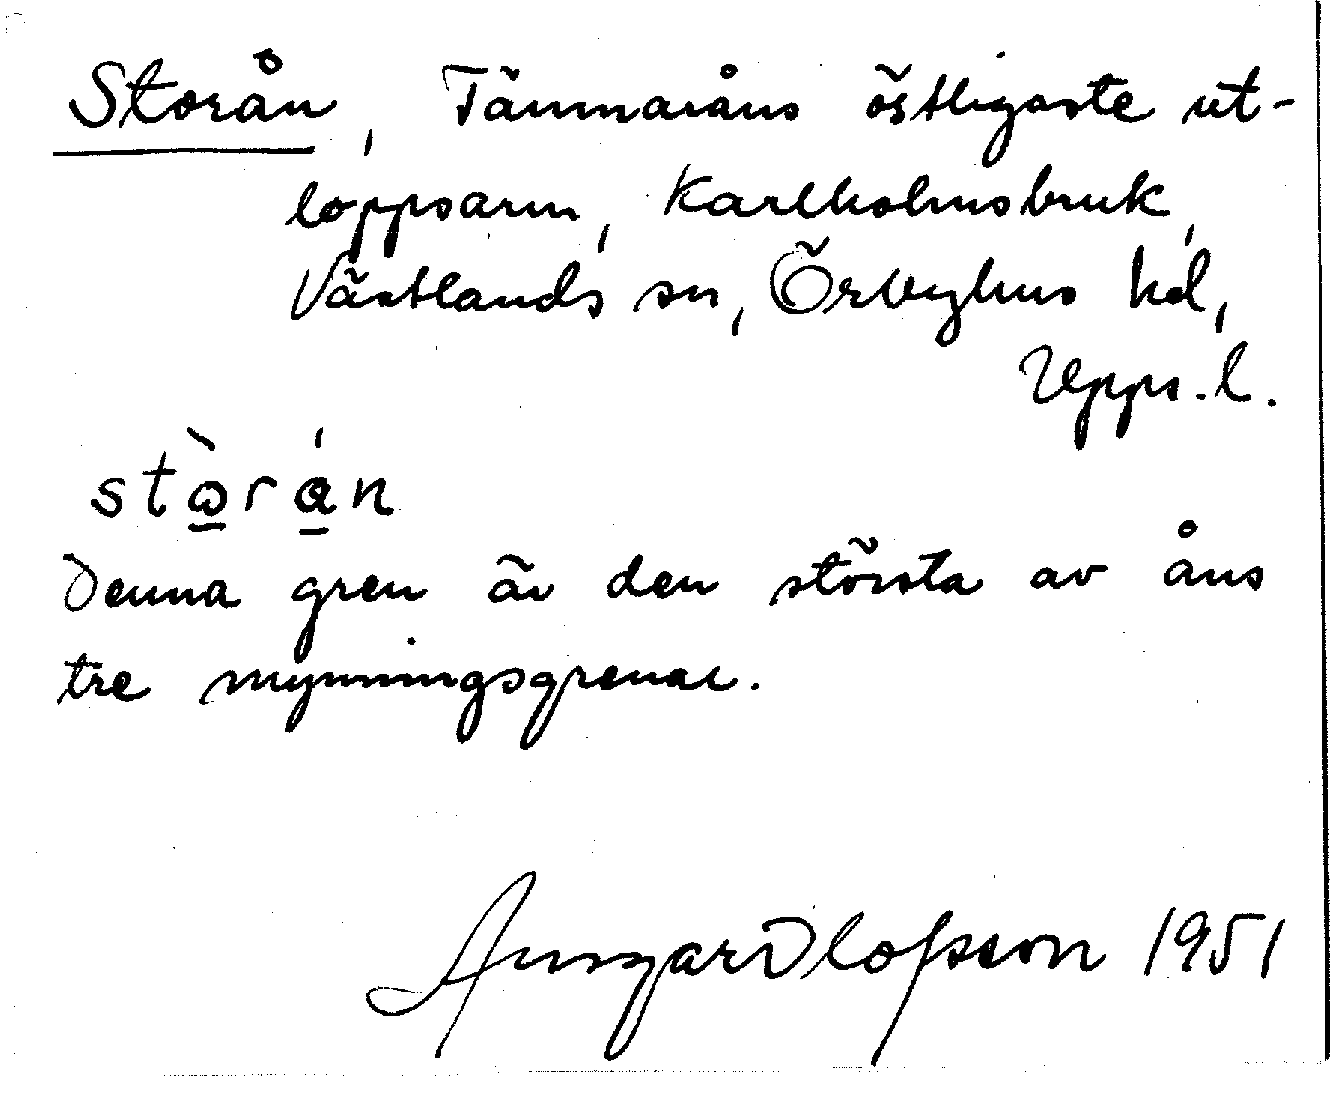 Storån, Tämnaråns östligaste ut-
loppsarm, Karlholmsbruk,
Västlands sn, Örbyhus hd,
Upps. l.
Denna gren är den största av åns
tre mynningsgrenar.
Ansgar Olofsson 1951